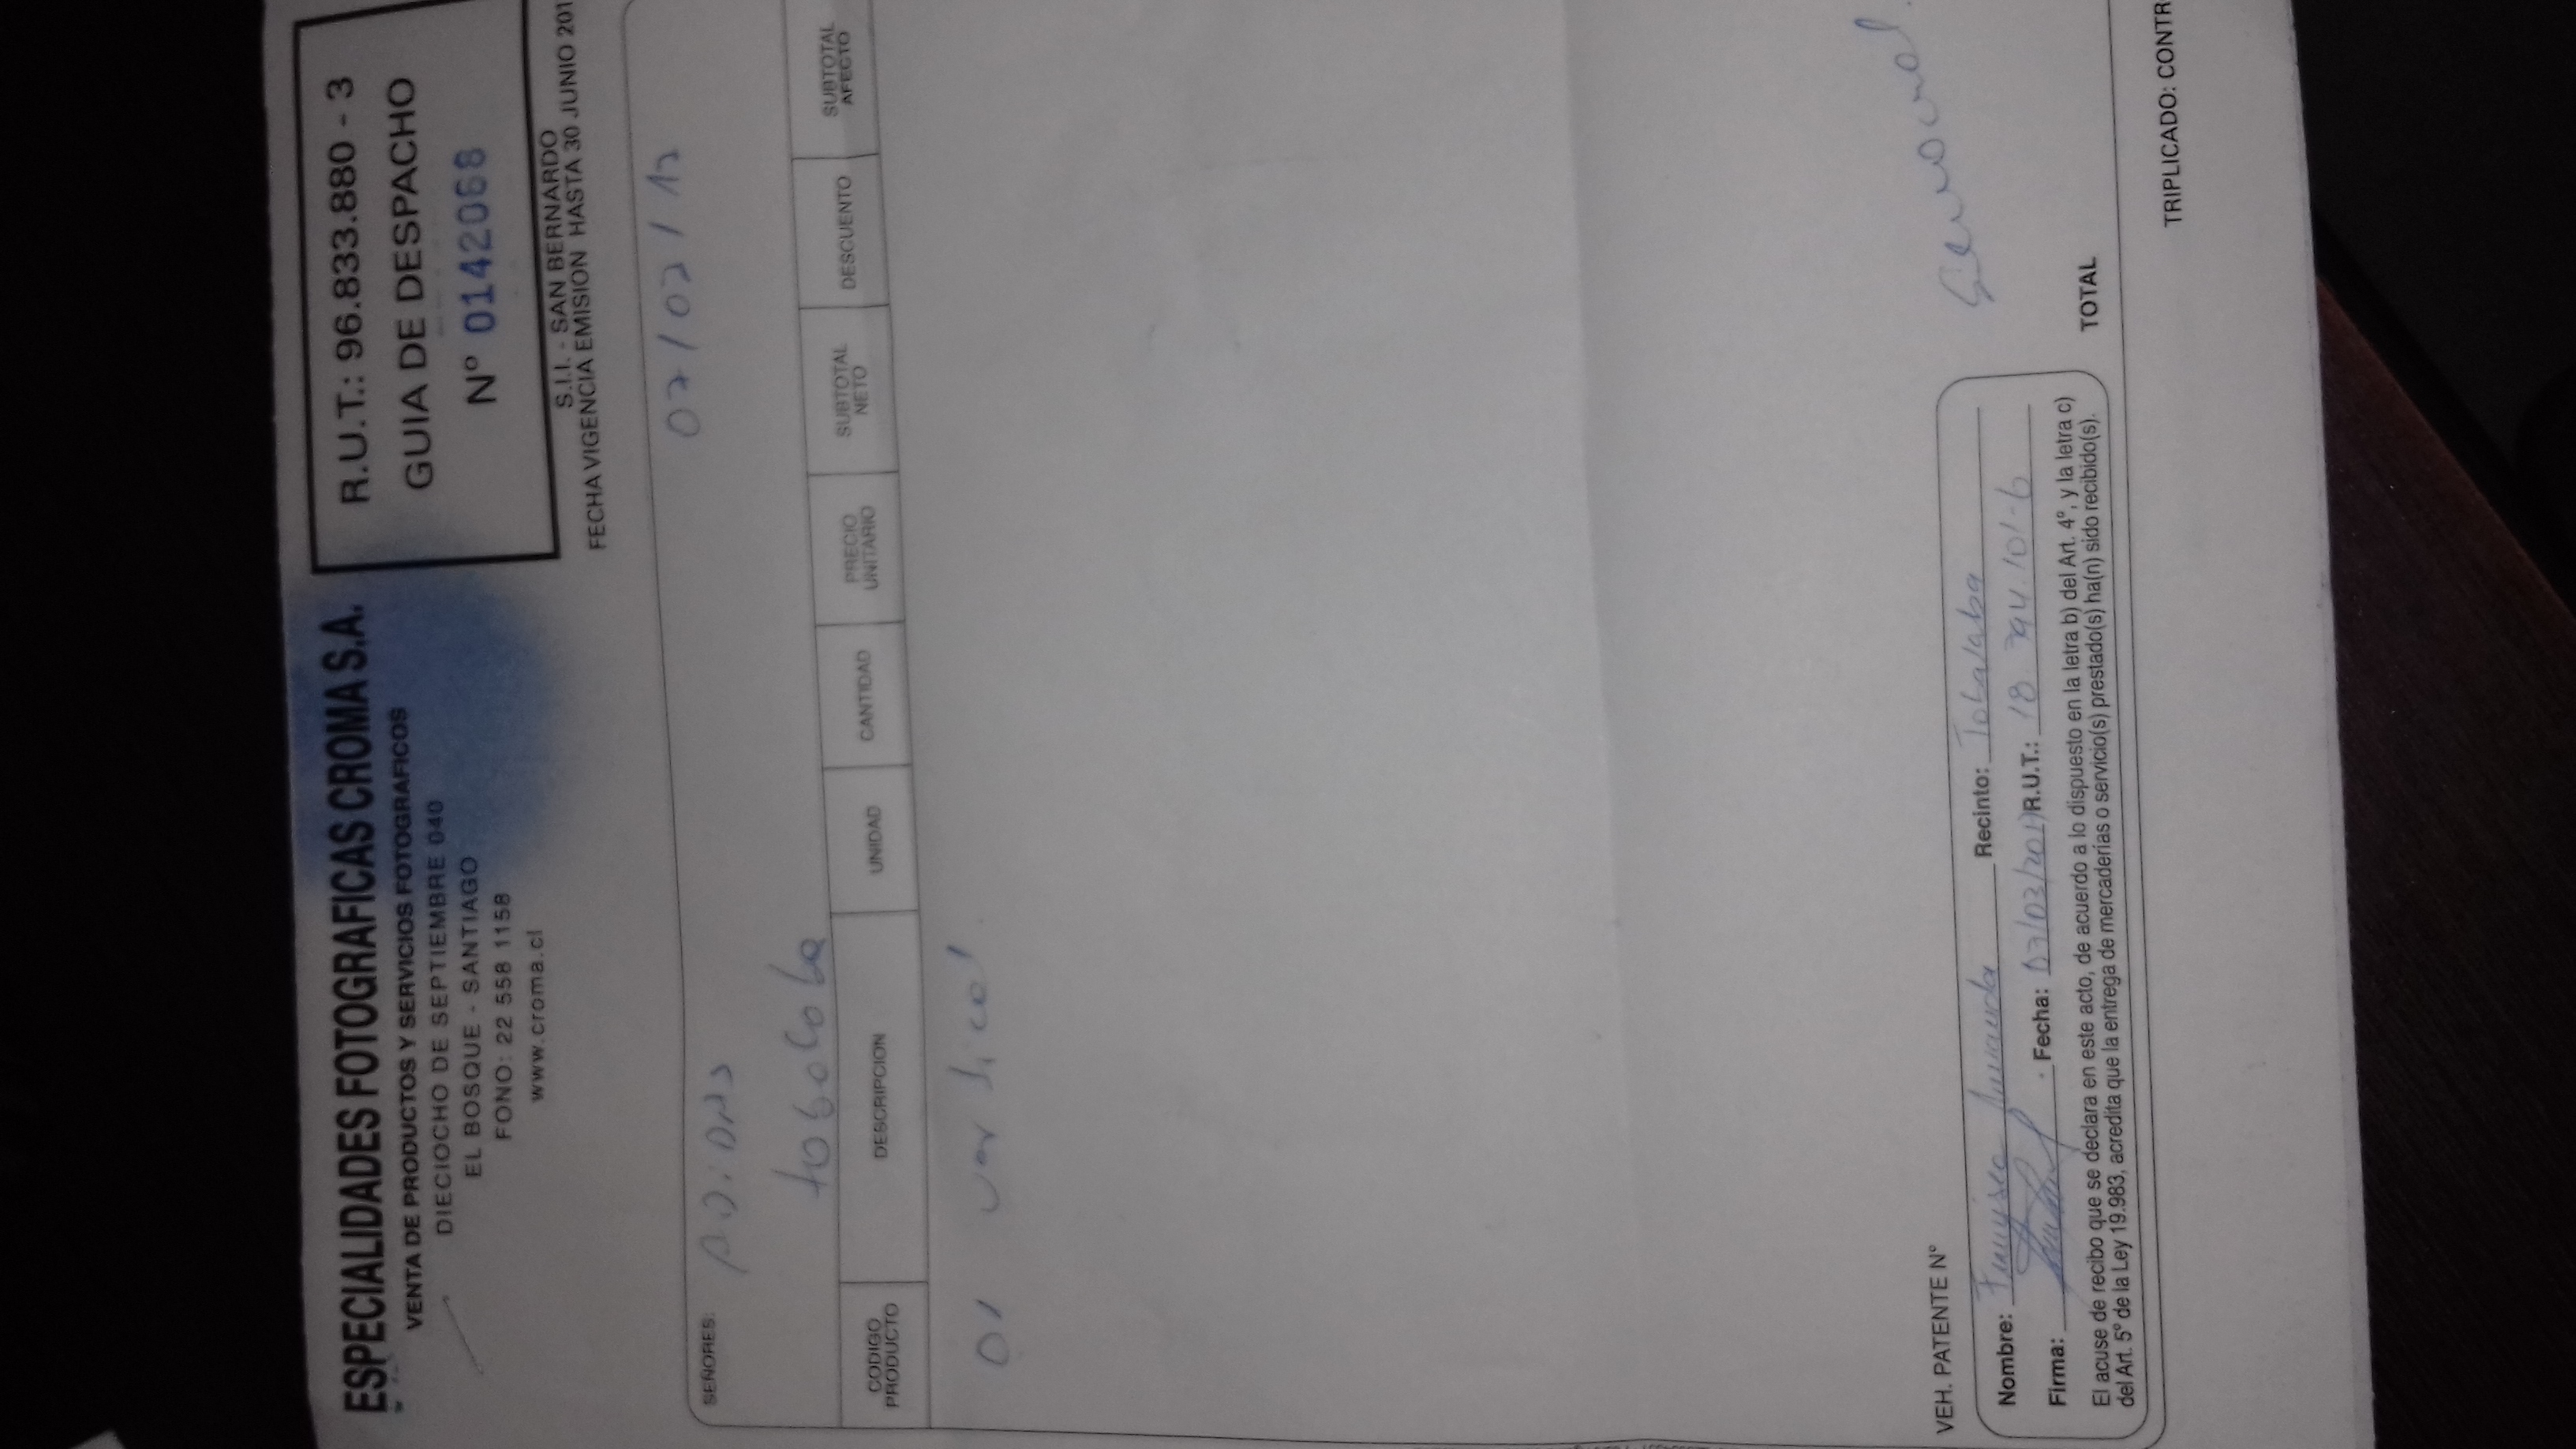 ESPECIALIDADES FOTOGRAFICAS CROMA S.A.
VENTA DE PRODUCTOS Y SERVICIOS FOTOGRAFICOS
DIECIOCHO DE SEPTIEMBRE 040
EL BOSQUE - SANTIAGO
FONO: 22 558 1158
www.croma.cl
R.U.T.: 96.833.880 - 3
GUIA DE DESPACHO
Nº 0142068
S.I.I. - SAN BERNARDO
FECHA VIGENCIA EMISION HASTA 30 JUNIO 201
SEÑORES:
CODIGO PRODUCTO DESCRIPCION UNIDAD CANTIDAD PRECIO UNITARIO SUBTOTAL NETO DESCUENTO SUBTOTAL AFECTO
01
VEH. PATENTE Nº
Nombre: Recinto: Tobalaba
Firma: Fecha: R.U.T.:
El acuse de recibo que se declara en este acto, de acuerdo a lo dispuesto en la letra b) del Art. 4º, y la letra c)
del Art. 5º de la Ley 19.983, acredita que la entrega de mercaderías o servicio(s) prestado(s) ha(n) sido recibido(s).
TOTAL
TRIPLICADO: CONTR